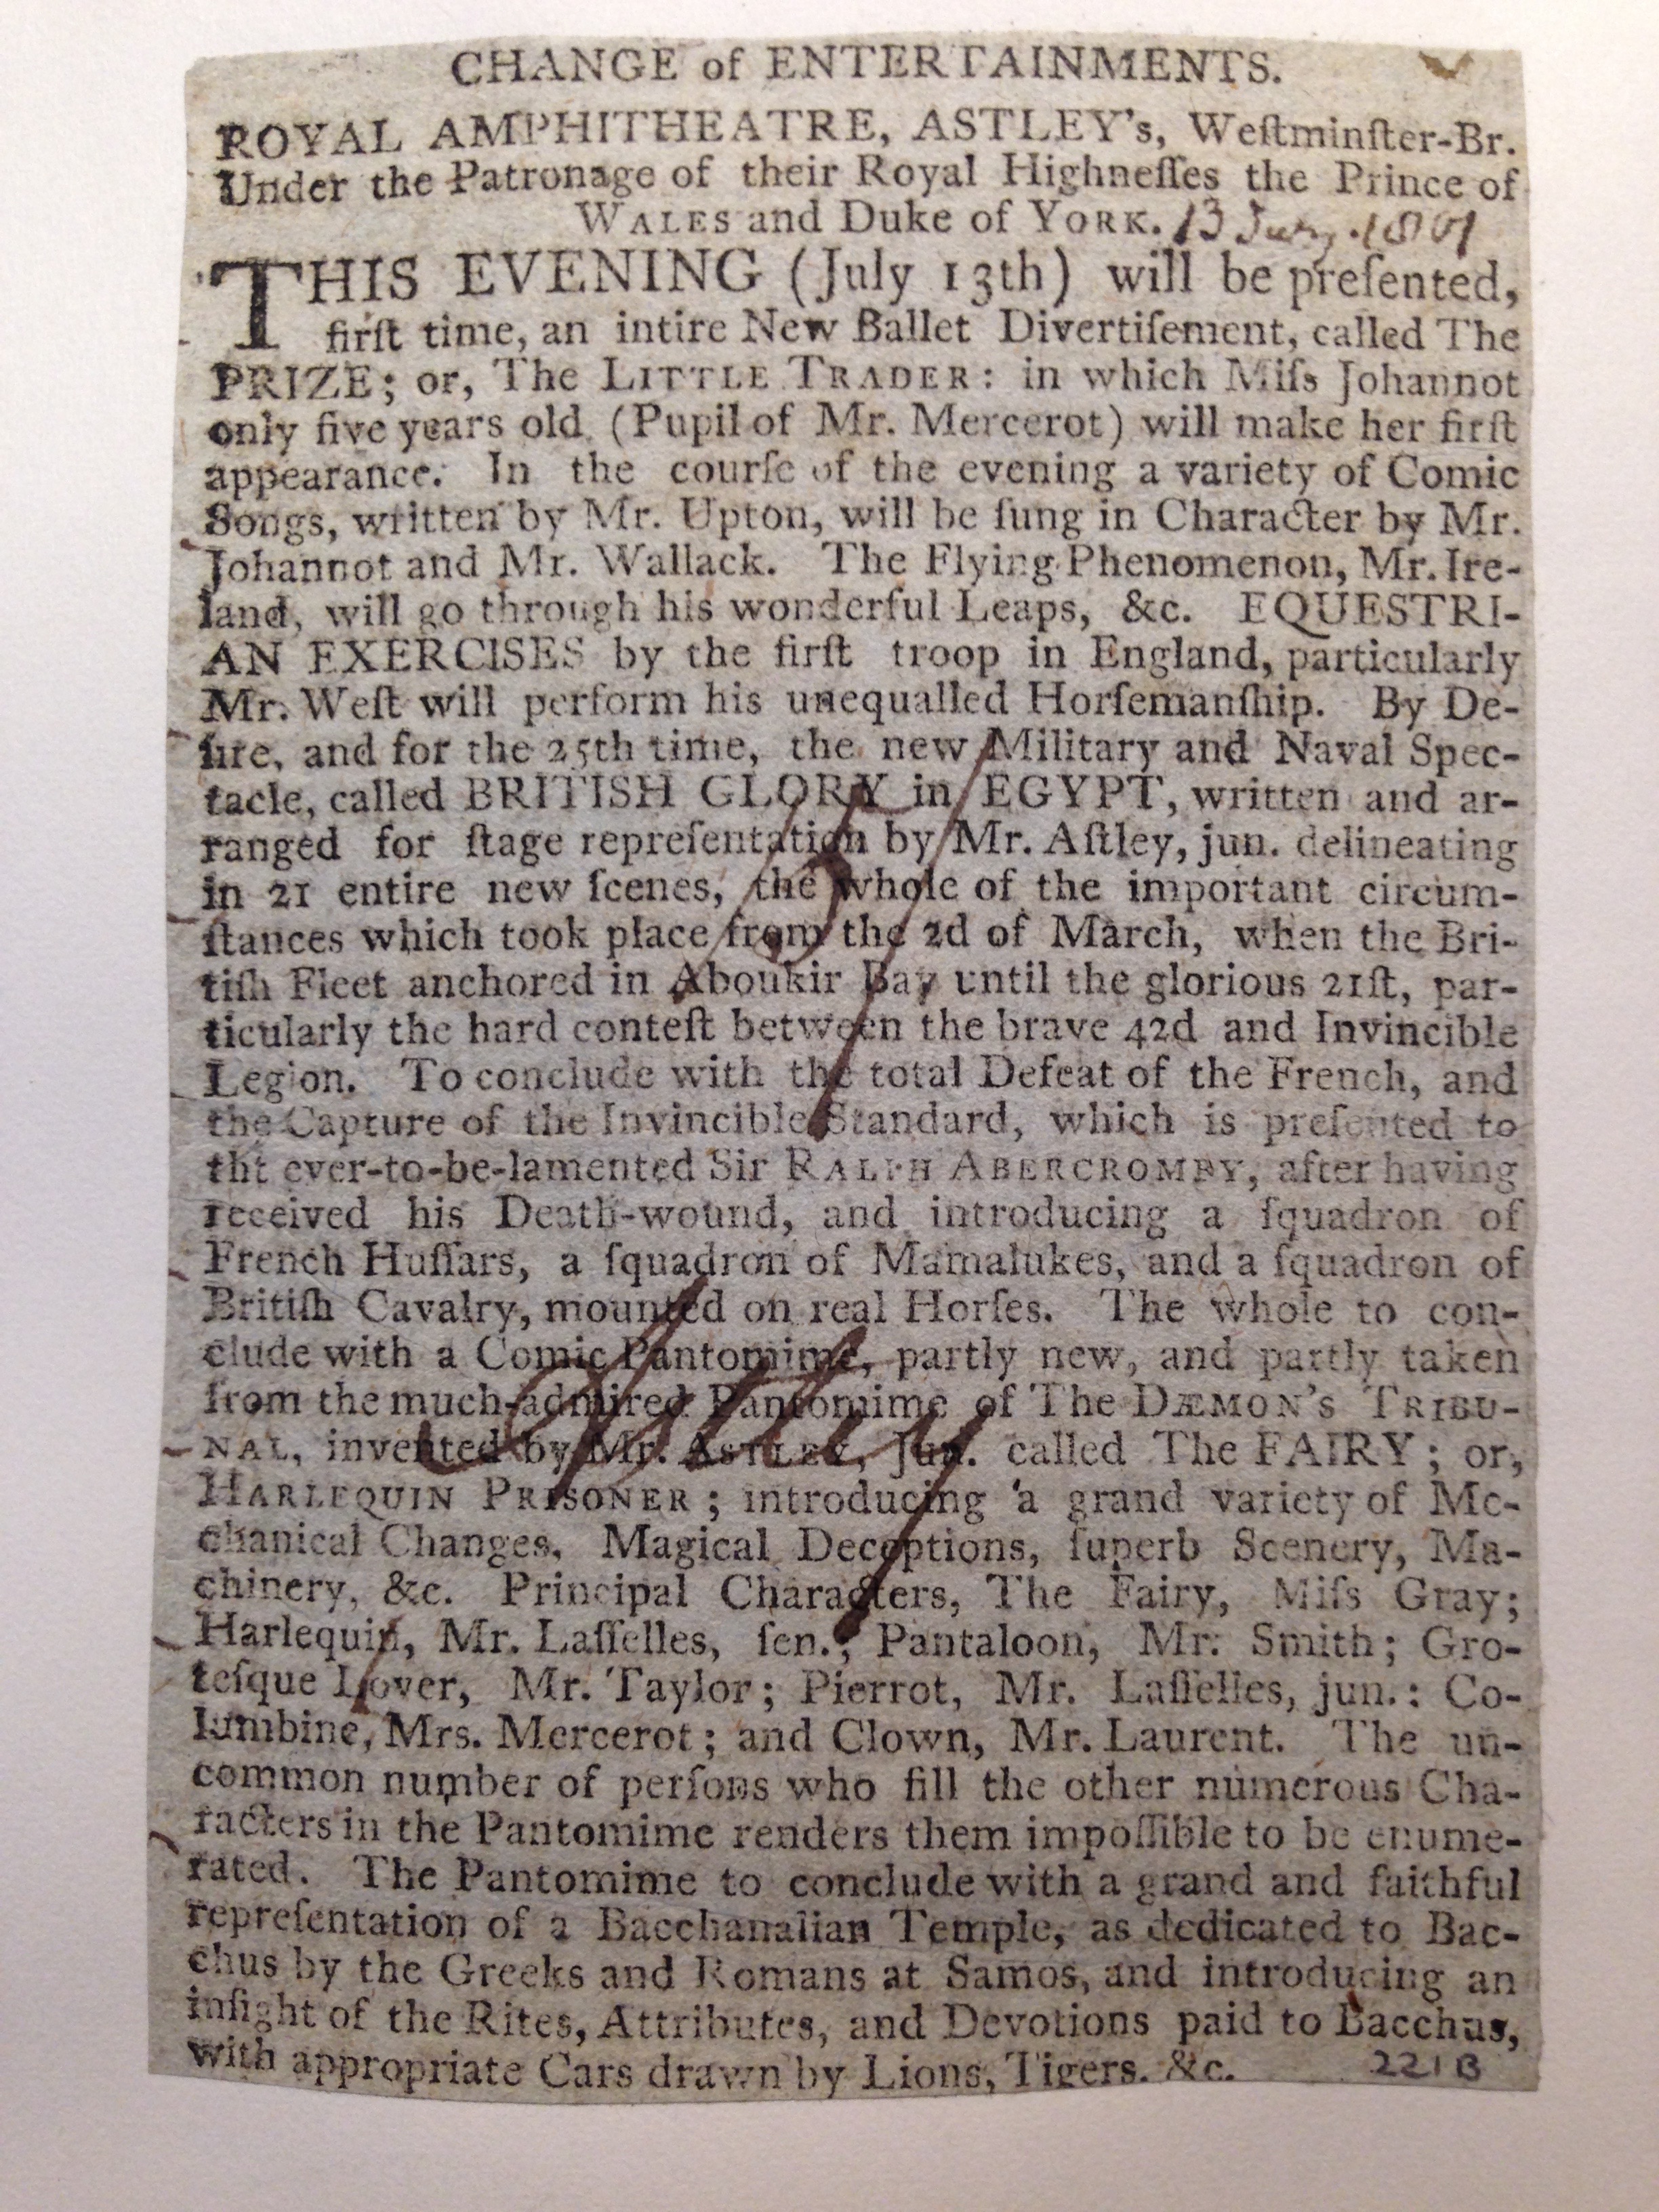 CHANGE of ENTERTAINMENTS.
ROYAL AMPHITHEATRE, ASTLEY's, Weſtminſter-Br.
Under the Patronage of their Royal Highneſſes the Prince of
WALES and Duke of YORK. 13 July. 1801
THIS EVENING (July 13th) will be preſented,
firſt time, an intire New Ballet Divertiſement, called The
PRIZE; or, The LITTLE TRADER: in which Miſs Johannot
only five years old (Pupil of Mr. Mercerot) will make her firſt
appearance. In the courſe of the evening a variety of Comic
Songs, written by Mr. Upton, will be ſung in Character by Mr.
Johannot and Mr. Wallack. The Flying Phenomenon, Mr. Ire-
land, will go through his wonderful Leaps, &c. EQUESTRI-
AN EXERCISES by the firſt troop in England, particularly
Mr. Weſt will perform his unequalled Horſemanſhip. By De-
ſire, and for the 25th time, the new Military and Naval Spec-
tacle, called BRITISH GLORY in EGYPT, written and ar-
ranged for ſtage repreſentation by Mr. Aſtley, jun. delineating
in 21 entire new ſcenes, the whole of the important circum-
ſtances which took place from the 2d of March, when the Bri-
tiſh Fleet anchored in Aboukir Bay until the glorious 21ſt, par-
ticularly the hard conteſt between the brave 42d and Invincible
Legion. To conclude with the total Defeat of the French, and
the Capture of the Invincible Standard, which is preſented to
tht ever-to-be-lamented Sir RALPH ABERCROMBY, after having
received his Death-wound, and introducing a ſquadron of
French Huſſars, a ſquadron of Mamalukes, and a ſquadron of
Britiſh Cavalry, mounted on real Horſes. The whole to con-
clude with a Comic Pantomime, partly new, and partly taken
from the much-admired Pantomime of The DÆMON'S TRIBU-
NAL, invented by Mr. ASTLEY, Jun. called The FAIRY; or,
HARLEQUIN PRISONER; introducing a grand variety of Me-
chanical Changes, Magical Deceptions, ſuperb Scenery, Ma-
chinery, &c. Principal Characters, The Fairy, Miſs Gray;
Harlequin, Mr. Laſſelles, ſen.; Pantaloon, Mr. Smith; Gro-
teſque Lover, Mr. Taylor; Pierrot, Mr. Laſſelles, jun.: Co-
lumbine, Mrs. Mercerot; and Clown, Mr. Laurent. The un-
common number of perſons who fill the other numerous Cha-
racters in the Pantomime renders them impoſſible to be enume-
rated. The Pantomime to conclude with a grand and faithful
repreſentation of a Bacchanalian Temple, as dedicated to Bac-
chus by the Greeks and Romans at Samos, and introducing an
inſight of the Rites, Attributes, and Devotions paid to Bacchus,
with appropriate Cars drawn by Lions, Tigers. &c. 221B